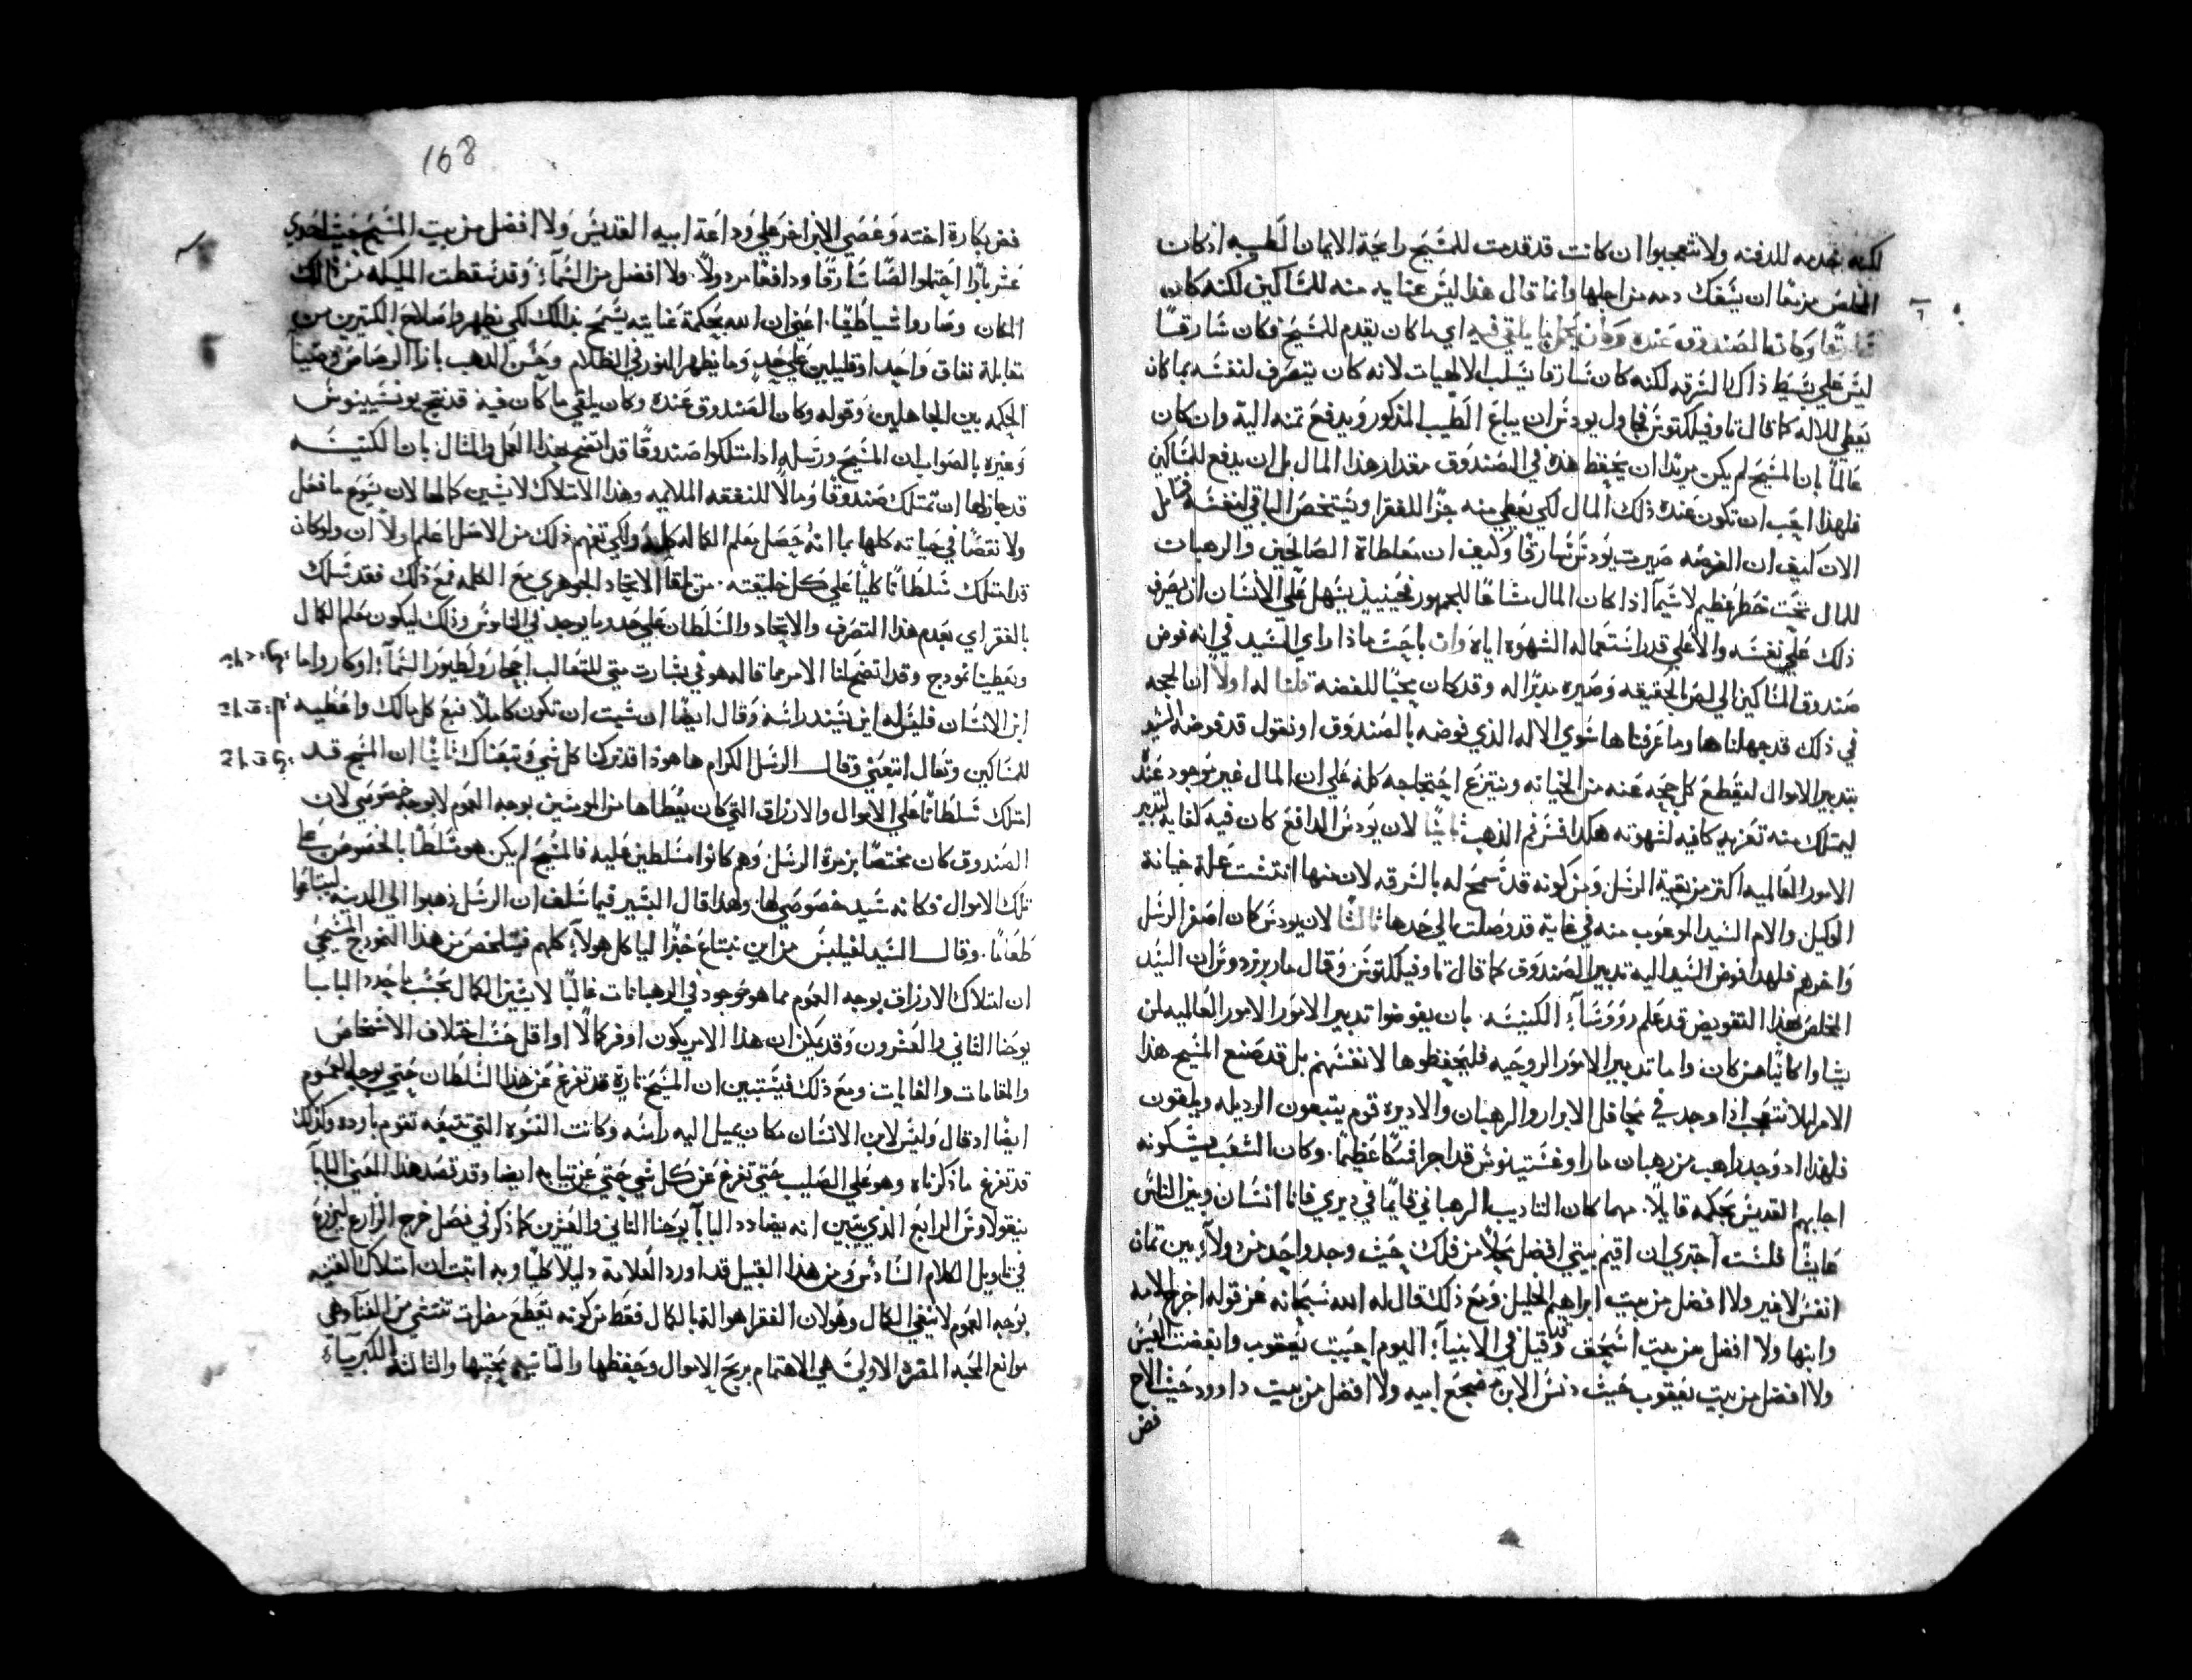 لكنه تخدمه للدفنه ولا تتعجبوا ان كانت قد قدمت للمسَيح رايحة الايمان الطيبه اذ كان
المخلص مزمعًا ان يسَفك دمه من اجلها وانما قال هذا ليسَ عنايه منه للمسَاكين لكنه كان
سَارقًا وكان الصَندوق عَنده وكان يحمل ما يلقي فيه اي ما كان يقدم للمسَيح فكان سَارقًا
ليسَ علي بسَيط ذاك السَرقه لكنه كان سَارقا يسَلب الالهيات لانه كان يتصَرف لنفسَه بما كان
يعَطي للاله كما قال تاوفيلكتوسَ فحاول يودسَ ان يباعَ الطيب المذكور ويدفعَ تمنه اليه وان كان
عَالمًا بان المسَيح لم يكن مريدًا ان يحفِظ هذه في الصَندوق مقدار هذا المال بل ان يدفع للمسَاكين
فلهذا احب ان تكون عَنده ذلك المال لكي يعَطي منه جزًا للفقرا ويسَتخصَ الباقي لنفسَه فتامل
الان كيف ان الفرصَه صَيرت يودسَ سَارقًا وكيف ان معَاطاة الصَالحين والرهبات
للمال تحت خطر عَظيم لا سَيما اذا كان المال مشاعًا للجمهور فحينيذٍ يسَهل علي الانسَان ان يصَرف
ذلك عَلي نفسَه والاعَلي قدر اسَتعماله الشهوة اياه وان باحِثَ ماذا راي السَيد في انه فوض
صَندوق المسَاكين الي لصَ بالحقيقه وصَيره مدبرًا له وقد كان محبًا للفضه قلنا له اولاً ان الحجه
في ذلك قد جهلناها وما عَرفناها سَوي الاله الذي فوضه بالصَندوق او نقول قد فوضه السَيد
بتدبير الاموال ليقطعَ كل حجه عَنه من الخيانه وينتزعَ احتجاجه كله عَلي ان المال غير موجود عَنده
ليمتلك منه تعَزيه كافيه لشهوته هكذا فسَر فم الذهب ثانيًا لان يودسَ الدافعَ كان فيه كفايه لتدبير
الامور العَالميه اكتر من بقية الرسَل ومن كونه قد سَمح له بالسَرقه لان منها انتشت عَلة خيانة
الوكيل والام السَيد المرغوب منه في غاية قد وصَلت الي حدها ثالثًا لان يودسَ كان اصَغر الرسَل
واخرهم فلهذا فوض السَيد اليه تدبير الصَندوق كما قال تاوفيلكتوسَ وقال مار برنردوسَ ان السَيد
المخلصَ بهذا التفويض قد عَلم رووسَآء الكنيسَه بان يفوضوا تدبير الامور العَالميه لمن
يشاوا كاينًا من كان واما تدبير الامور الروحيه فليحفظوها لانفسَهم بل قد صَنع المسَيح هذا
الامر ليلا نتعَجب اذا وجد في محافل الابرار والرهبان والاديره قوم يتبعون الرديله ويلقون
فلهذا اد وجد راهب من رهبان مار اوغسَتينوسَ قد اجرا فسَقًا عَظيمًا وكان الشعَب يشكونه
اجابهم القديسَ بحكمه قايلاً مهما كان التاديب الرهباني قايمًا في ديري فانا انسَان وبين الناسَ
عَايشًا فلسَت اجتري ان اقيم بيتي افضل حالاً من فلك حيث وجد واحد مردولاً بين تمان
انفسَ لا غير ولا افضل من بيت ابراهيم الخليل ومعَ ذلك قال له الله سَبحانه عَز قوله اخرج الامه
وابنها ولا افضل من بيت اسَحق وقد قيل في الانبيآء اليوم احببت يعَقوب وابغضت العيسَ
ولا افضل من بيت يعَقوب حَيث دنسَ الابن مضجعَ ابيه ولا افضل من بيت داوود حيث الاخ
فض
168
فض بكارة اخته وعَصَي الابن اخر علي وداعَة ابيه القديسَ ولا افضل من بيت المسَيح حيث احدي
عَشر بارًا احتملوا لصًا سَارقًا ودافعًا مردولاً ولا افضل من السَمآء وقد سَقطت المليكه من ذالك
المكان وصَاروا شياطينًا اعَني ان الله بحكمة عَنايته يسَمح بذالك لكي يظهر اصَلاح الكتيرين من
مقابلة نفاق واحد او قليلين علي حدٍ وما يظهر النور في الظلام وحسَن الدهب بازا الرصَاصَ وصيت
الحكمه بين الجاهلين وقوله وكان الصَندوق عَنده وكان يلقي ما كان فيه قد نتج يونسَيينوسَ
وغيره بالصَواب ان المسَيح ورسَله ادا متلكوا صَندوقًا قد اتضح بهذا العَمل والمثال بان الكنيسَه
قد جاز لها ان تمتلك صَندوقًا ومالاً للنفقه الملايمه وهذا الامتلاك لا يشين كمالها لان يسَوع ما فعَل
ولا نقصًا في حياته كلها بما انه حصَل معَلم الكمال كله ولكي تفهم ذلك من الاصَل اعَلم اولاً ان ولو كان
قد امتلك سَلطانًا كليًا علي كل خليقته من تلقا الاتحاد الجوهري معَ الكلمه فمعَ ذلك فقد تمسَك
بالفقر اي بعَدم هذا التصَرف والاتحاد والسَلطان علي حدٍ وما يوجد في الناسَ وذلك ليكون معَلم الكمال
ويعَطينا نموذج وقد اتضح لنا الامر مما قاله هو في بشارت متي للتعَالب احجار ولطيور السَمآء اوكار واما
ابن الانسَان فليسَ له اين يسَند راسَه وقال ايضًا ان شيت ان تكون كاملاً فبعَ كل مالك واعَطيه
للمسَاكين وتعَال اتبعَني وقال الرسَل الكرام ها هوذا قد تركنا كل شي وتبعَناك ثانيًا ان المسَيح قد
امتلك سَلطانًا علي الاموال والارزاق التي كان يعَطاها من المومنين بوجه العَموم لا بوجه خصَوصَي لان
الصَندوق كان مختصًا بزمرة الرسَل وهم كانوا مسَلطين عَليه فالمسَيح لم يكن هو مسَلطًا بالخصَوصَ علي
تلك الاموال فكانه سَيد خصَوصَي لها ولهذا قال البشير فيما سَلف ان الرسَل ذهبوا الي المدينه ليبتاعَوا
طعَامًا وقال السَيد لفيلبسَ من اين نبتاع خبزًا لياكل هولآء كلهم فيتلخصَ من هذا النموذج المسَيحي
ان امتلاك الارزاق بوجه العَموم مما هو موجود في الرهبانات غالبًا لا يشين الكمال بحسَب ما حدد البابا
يوحنا التاني والعَشرون وقد يمكن ان هذا الامر يكون اوفر كمالاً او اقل حسَب اختلاف الاشخاصَ
والمقامات والغايات ومعَ ذلك فيستبين ان المسَيح تارة قد تفرغ عَن هذا السَلطان حتي بوجه العَموم
ايضًا اد قال وليسَ لابن الانسَان مكان يميل اليه راسَه وكانت النسَوه التي تتبعَه تقوم باوده وكذلك
قد تفرغ ما ذكرناه وهو عَلي الصَليب حتي تفرغ عَن كل شي حتي عَن تيابه ايضا وقد قصَد هذا المعَني البابا
نيقولاوسَ الرابعَ الذي يتبين انه يضادد البابا يوحنا التاني والعَشرين كما ذكر في فصَل خرج الزارع ليزرعَ
في تاويل الكلام السَادسَ ومن هذا القبيل قد اورد العَلامة دليلاً كليًا وبه اتبت ان امتلاك القنيه
بوجه العَموم لا ينفي الكمال وهو لان الفقر اهو الة بالكمال فقط من كونه يقطعَ مضرات تنشي من الغنآ وهي
موانع المحبه المقره الاولي هي الاهتمام بربح الاموال وحفظها والتانيه محبتها والتالته الكبريآء